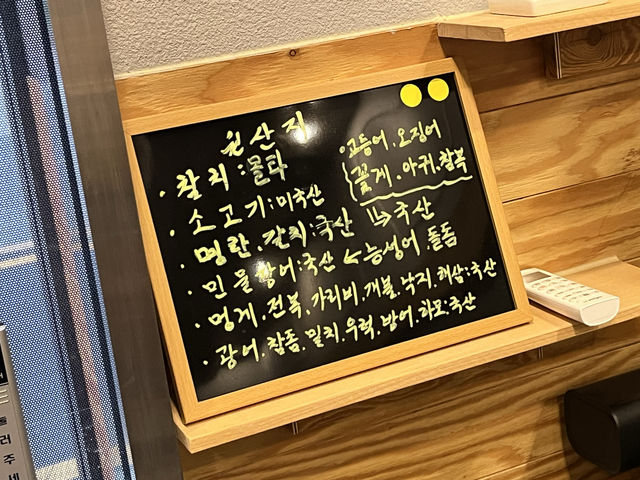 원산지
· 참치 : 몰타
· 소고기 : 미국산
· 명란 . 갈치 : 국산
· 민물장어 : 국산 < 능성어 . 돌돔
· 멍게 . 전복 . 가리비 . 개불 . 낙지 . 해삼 : 국산
· 광어 . 참돔 . 밀치 . 우럭 . 방어 . 국산
· 고등어 . 오징어
꽃게 . 아귀 . 참복
↳ 국산
러
주
세